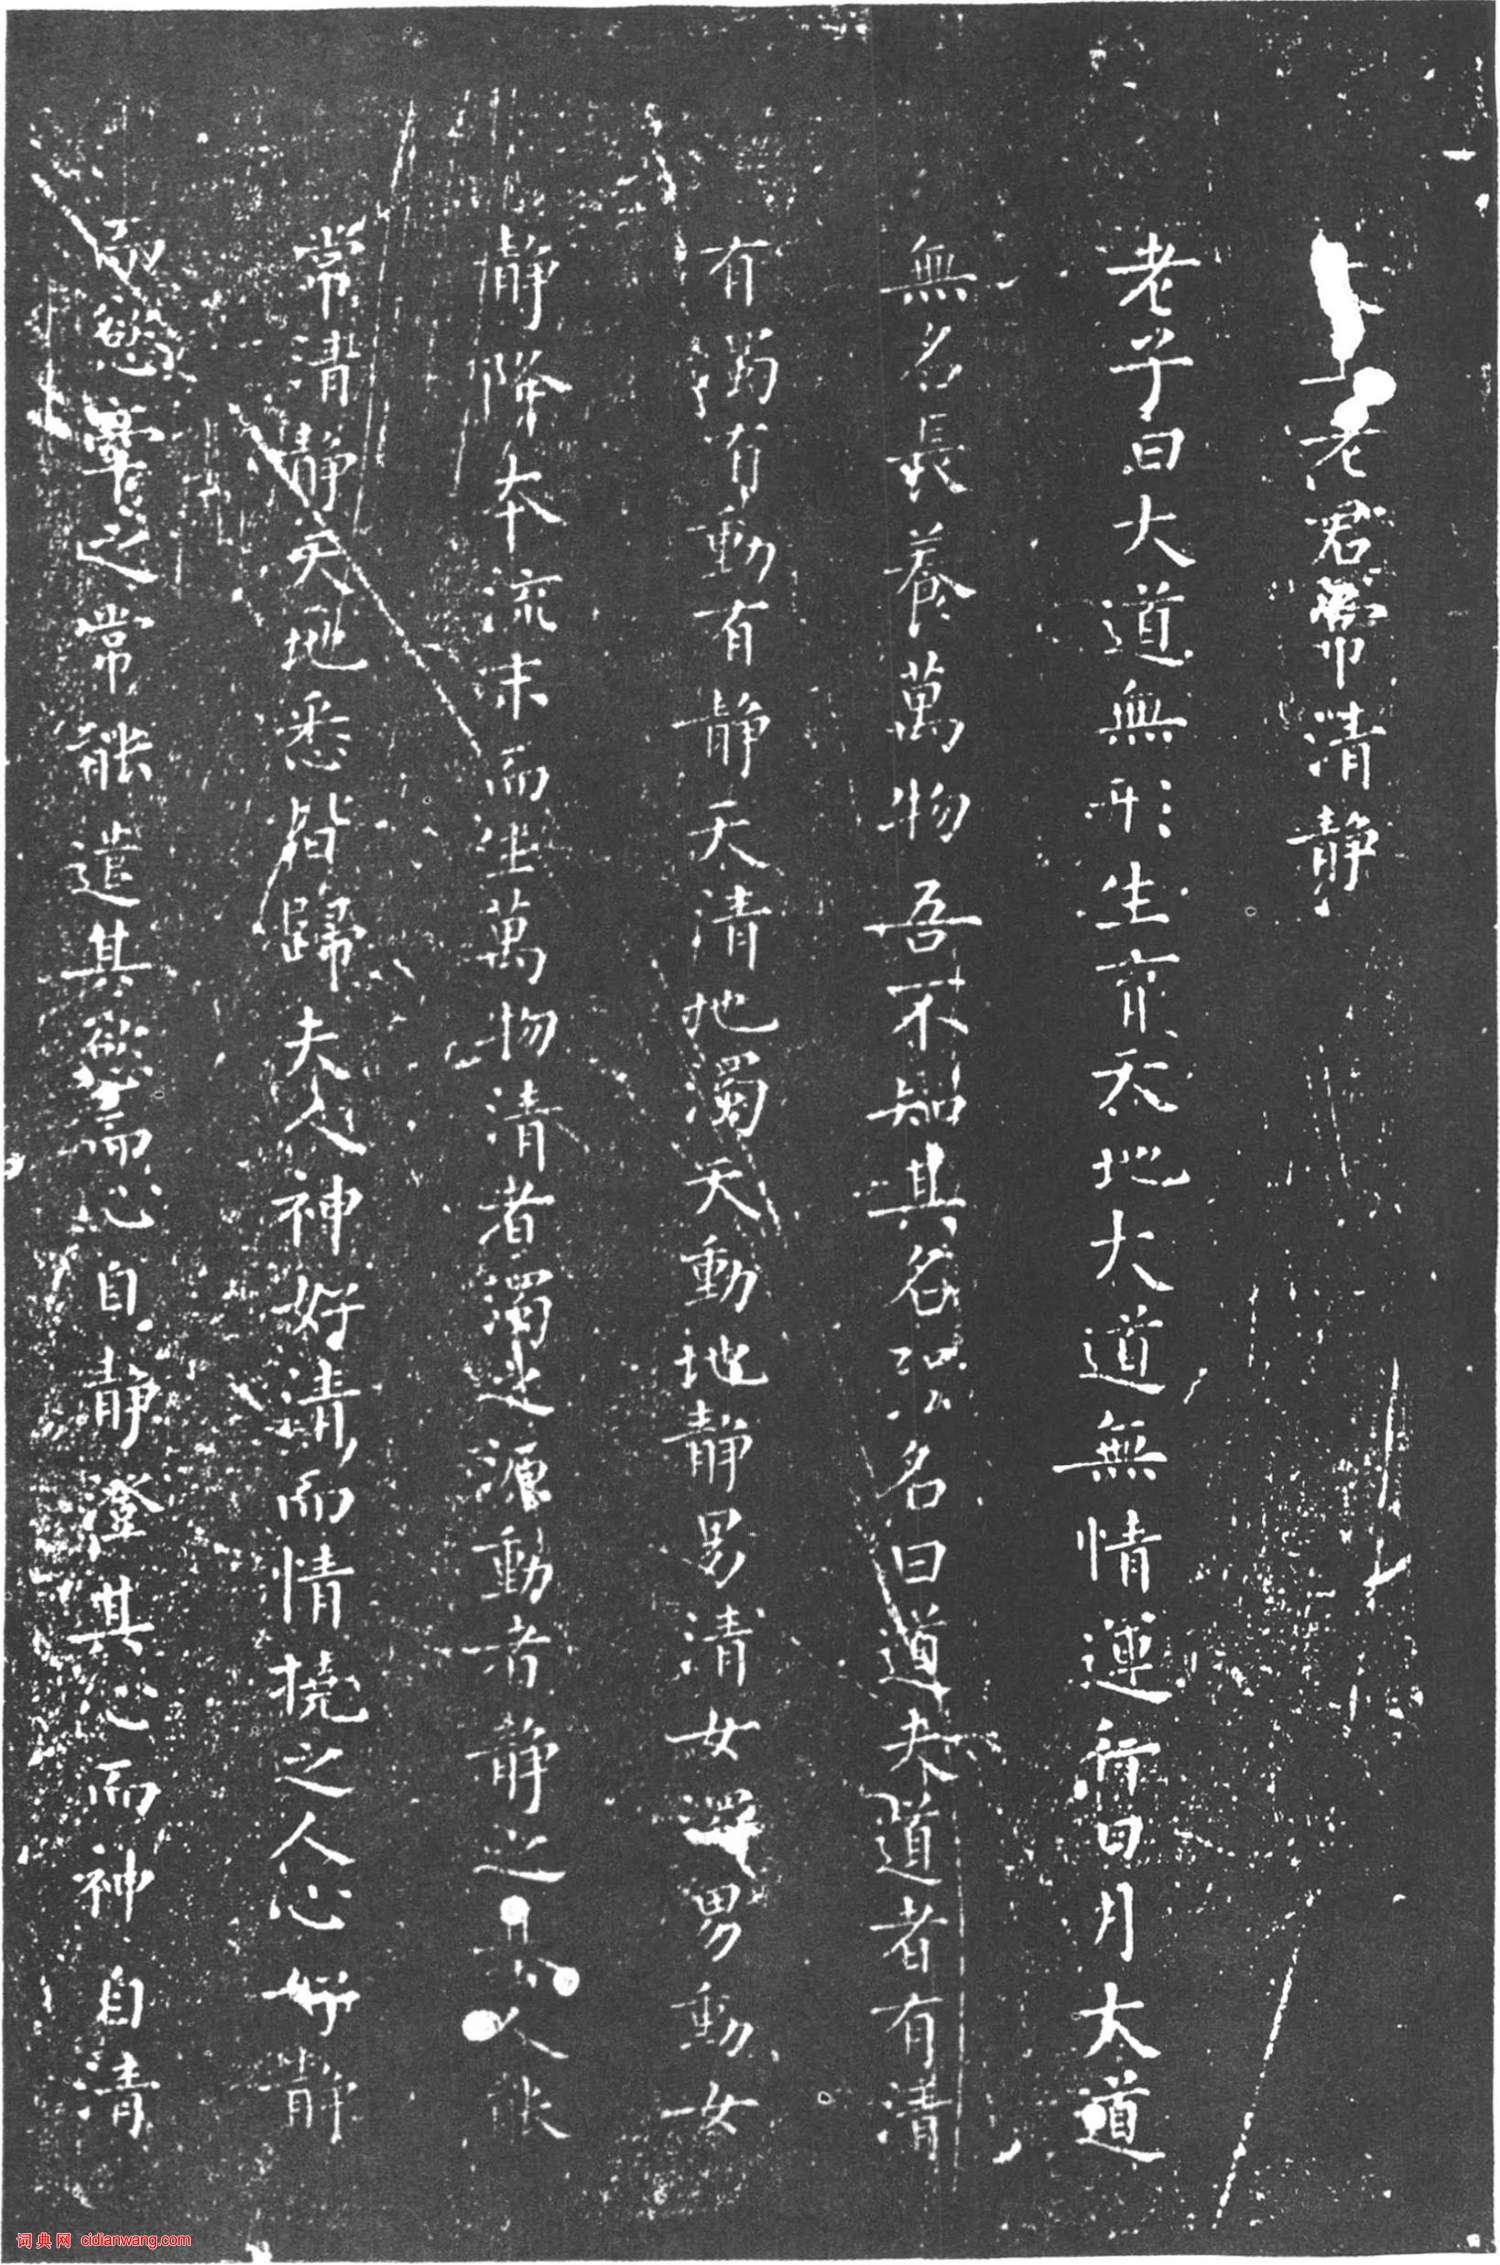 老君常清静
老子曰大道無形生育天地大道無情運行日月大道
無名長養萬物吾不知其名强名曰道夫道者有清
有濁有動有静天清地濁天動地静男清女濁男動女
静降本流末而生萬物清者濁之源動者静之基人能
常清静天地悉皆歸夫人神好清而情撓之人心好静
而慾牽之常能遣其慾而心自静澄其心而神自清
词典网 cidianwang.com